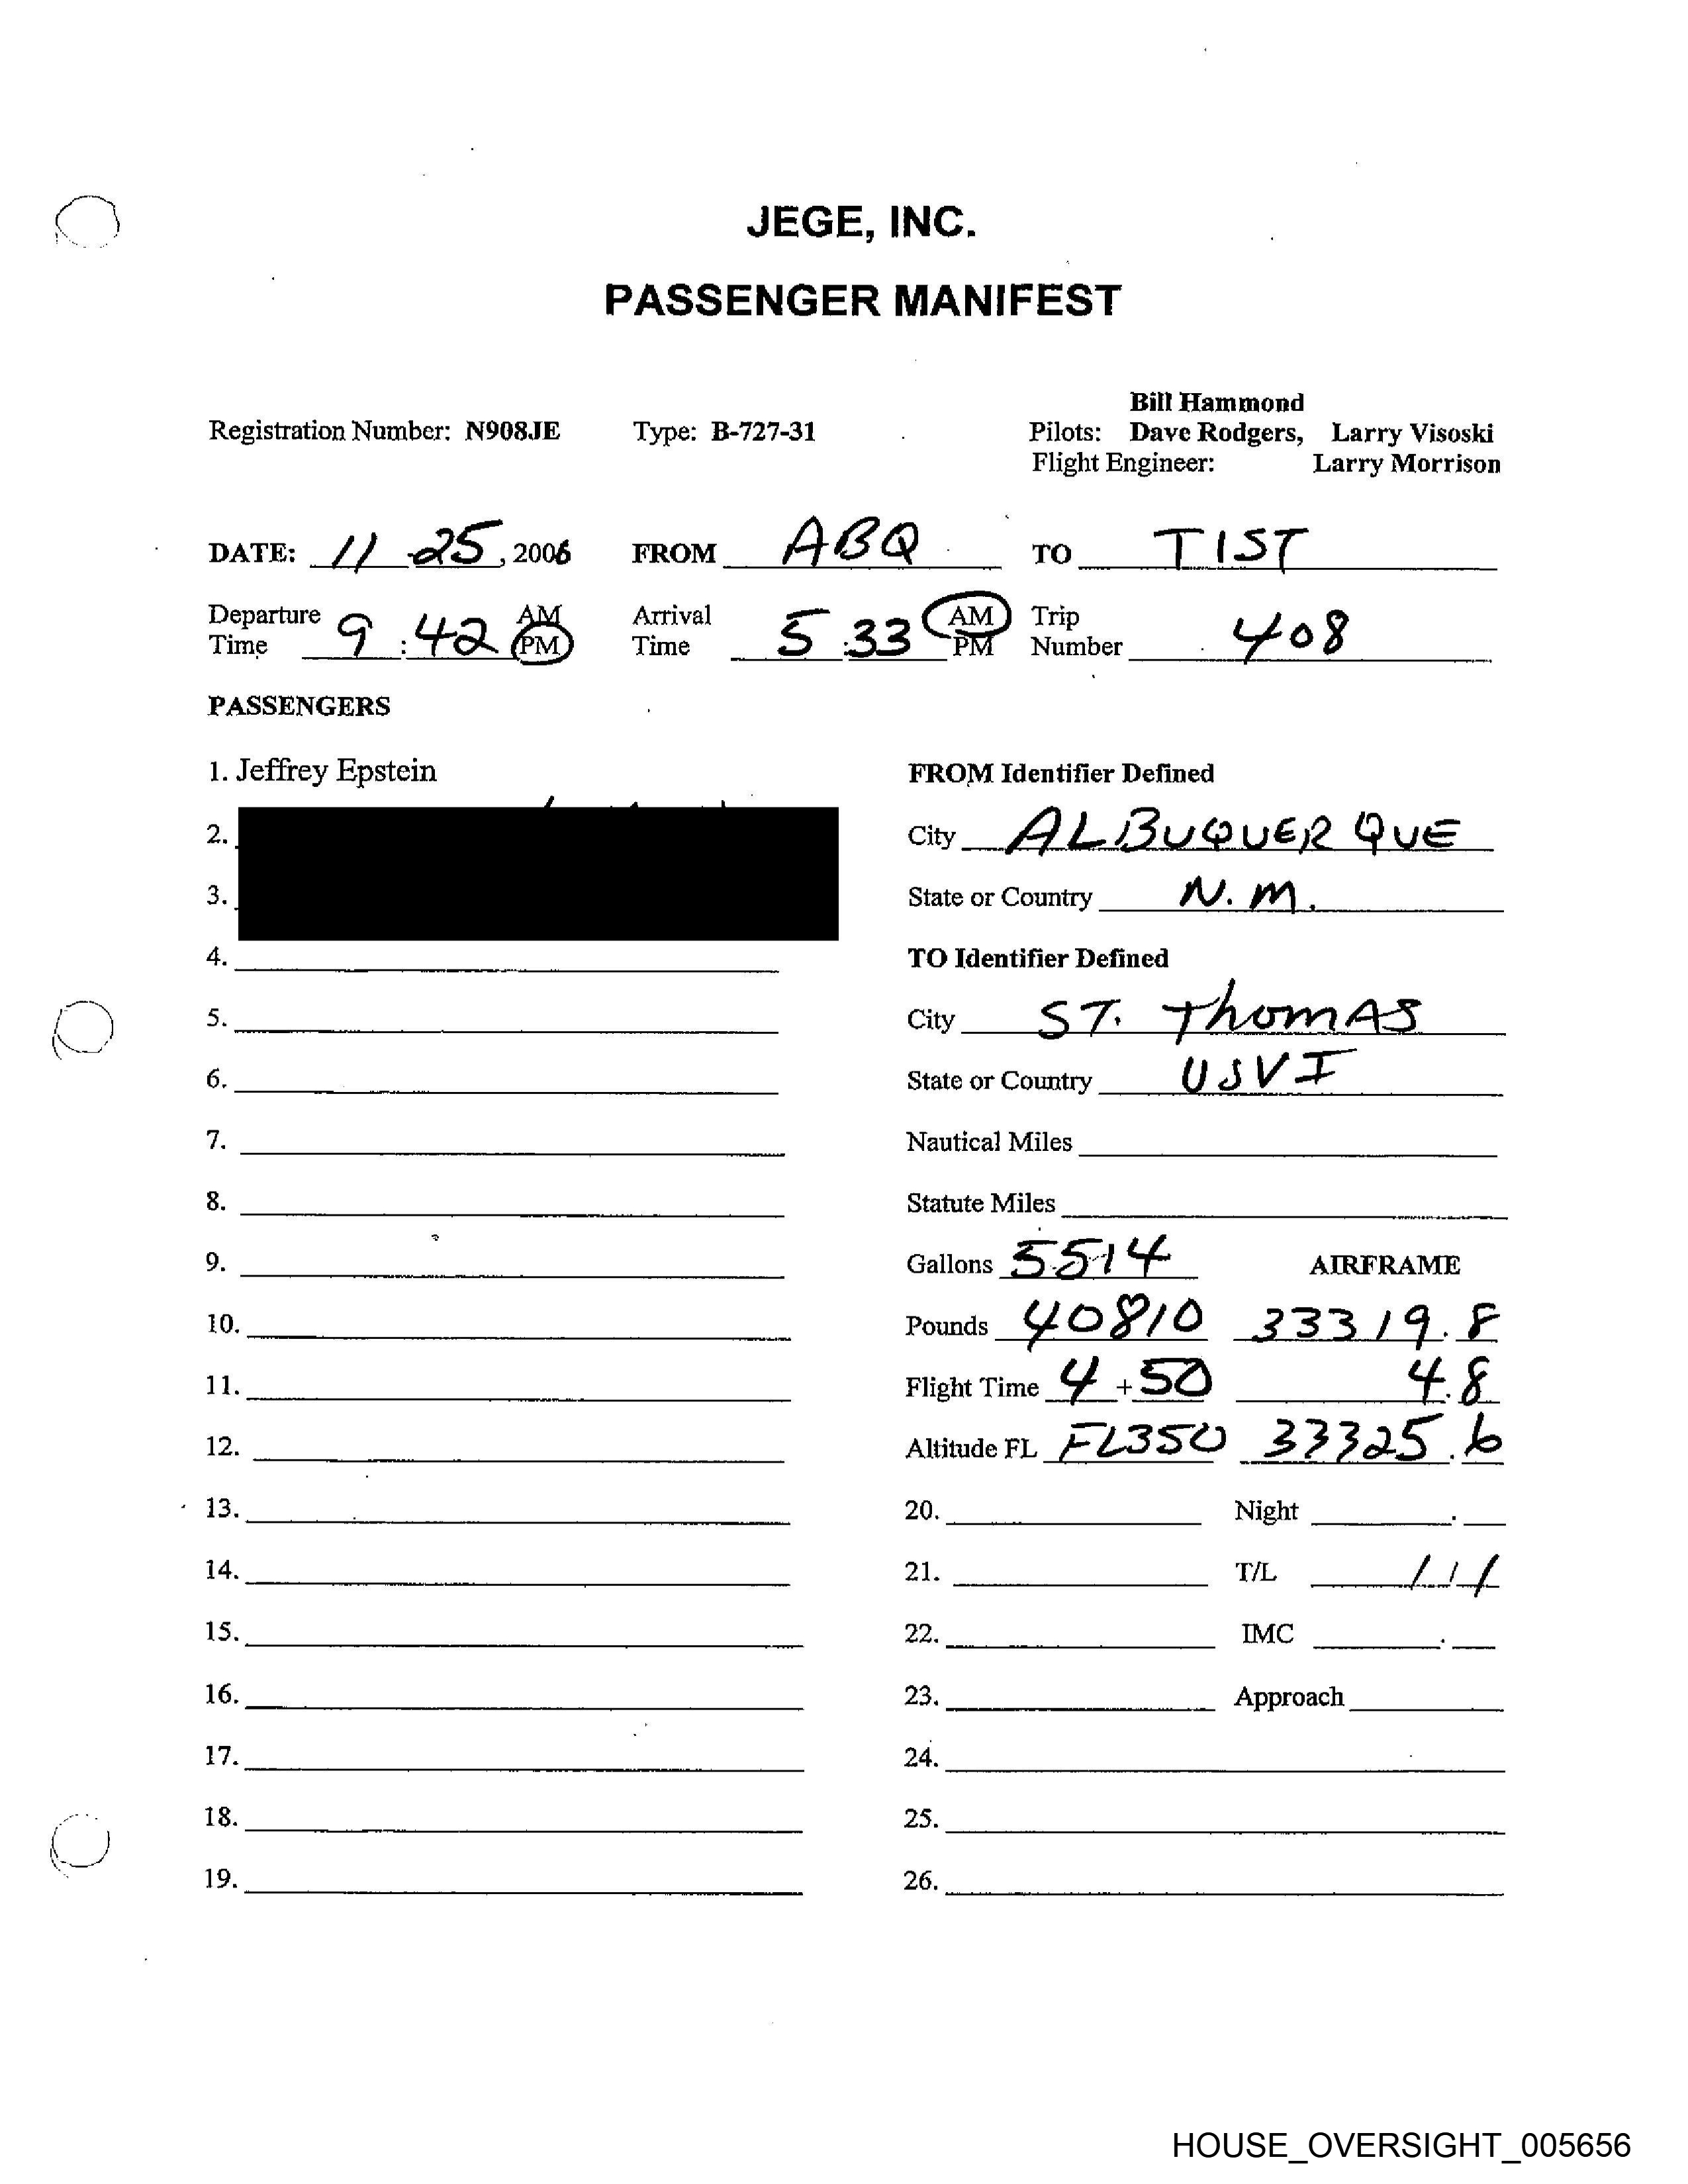 JEGE, INC.
PASSENGER MANIFEST
Bill Hammond
Registration Number: N908JE Type: B-727-31 Pilots: Dave Rodgers, Larry Visoski
Flight Engineer: Larry Morrison
DATE: 11 -25, 2006 FROM ABQ TO TIST
Departure Time 9:42 AM PM Arrival Time 5:33 AM PM Trip Number 408
PASSENGERS
1. Jeffrey Epstein FROM Identifier Defined
2. City ALBUQUERQUE
3. State or Country N.M.
4. TO Identifier Defined
5. City ST. ThomAS
6. State or Country USVI
7. Nautical Miles
8. Statute Miles
9. Gallons 5514 AIRFRAME
10. Pounds 40810 33319.8
11. Flight Time 4+50 4.8
12. Altitude FL FL350 33325.6
13. 20. Night .
14. 21. T/L 1/1
15. 22. IMC .
16. 23. Approach
17. 24.
18. 25.
19. 26.
HOUSE_OVERSIGHT_005656